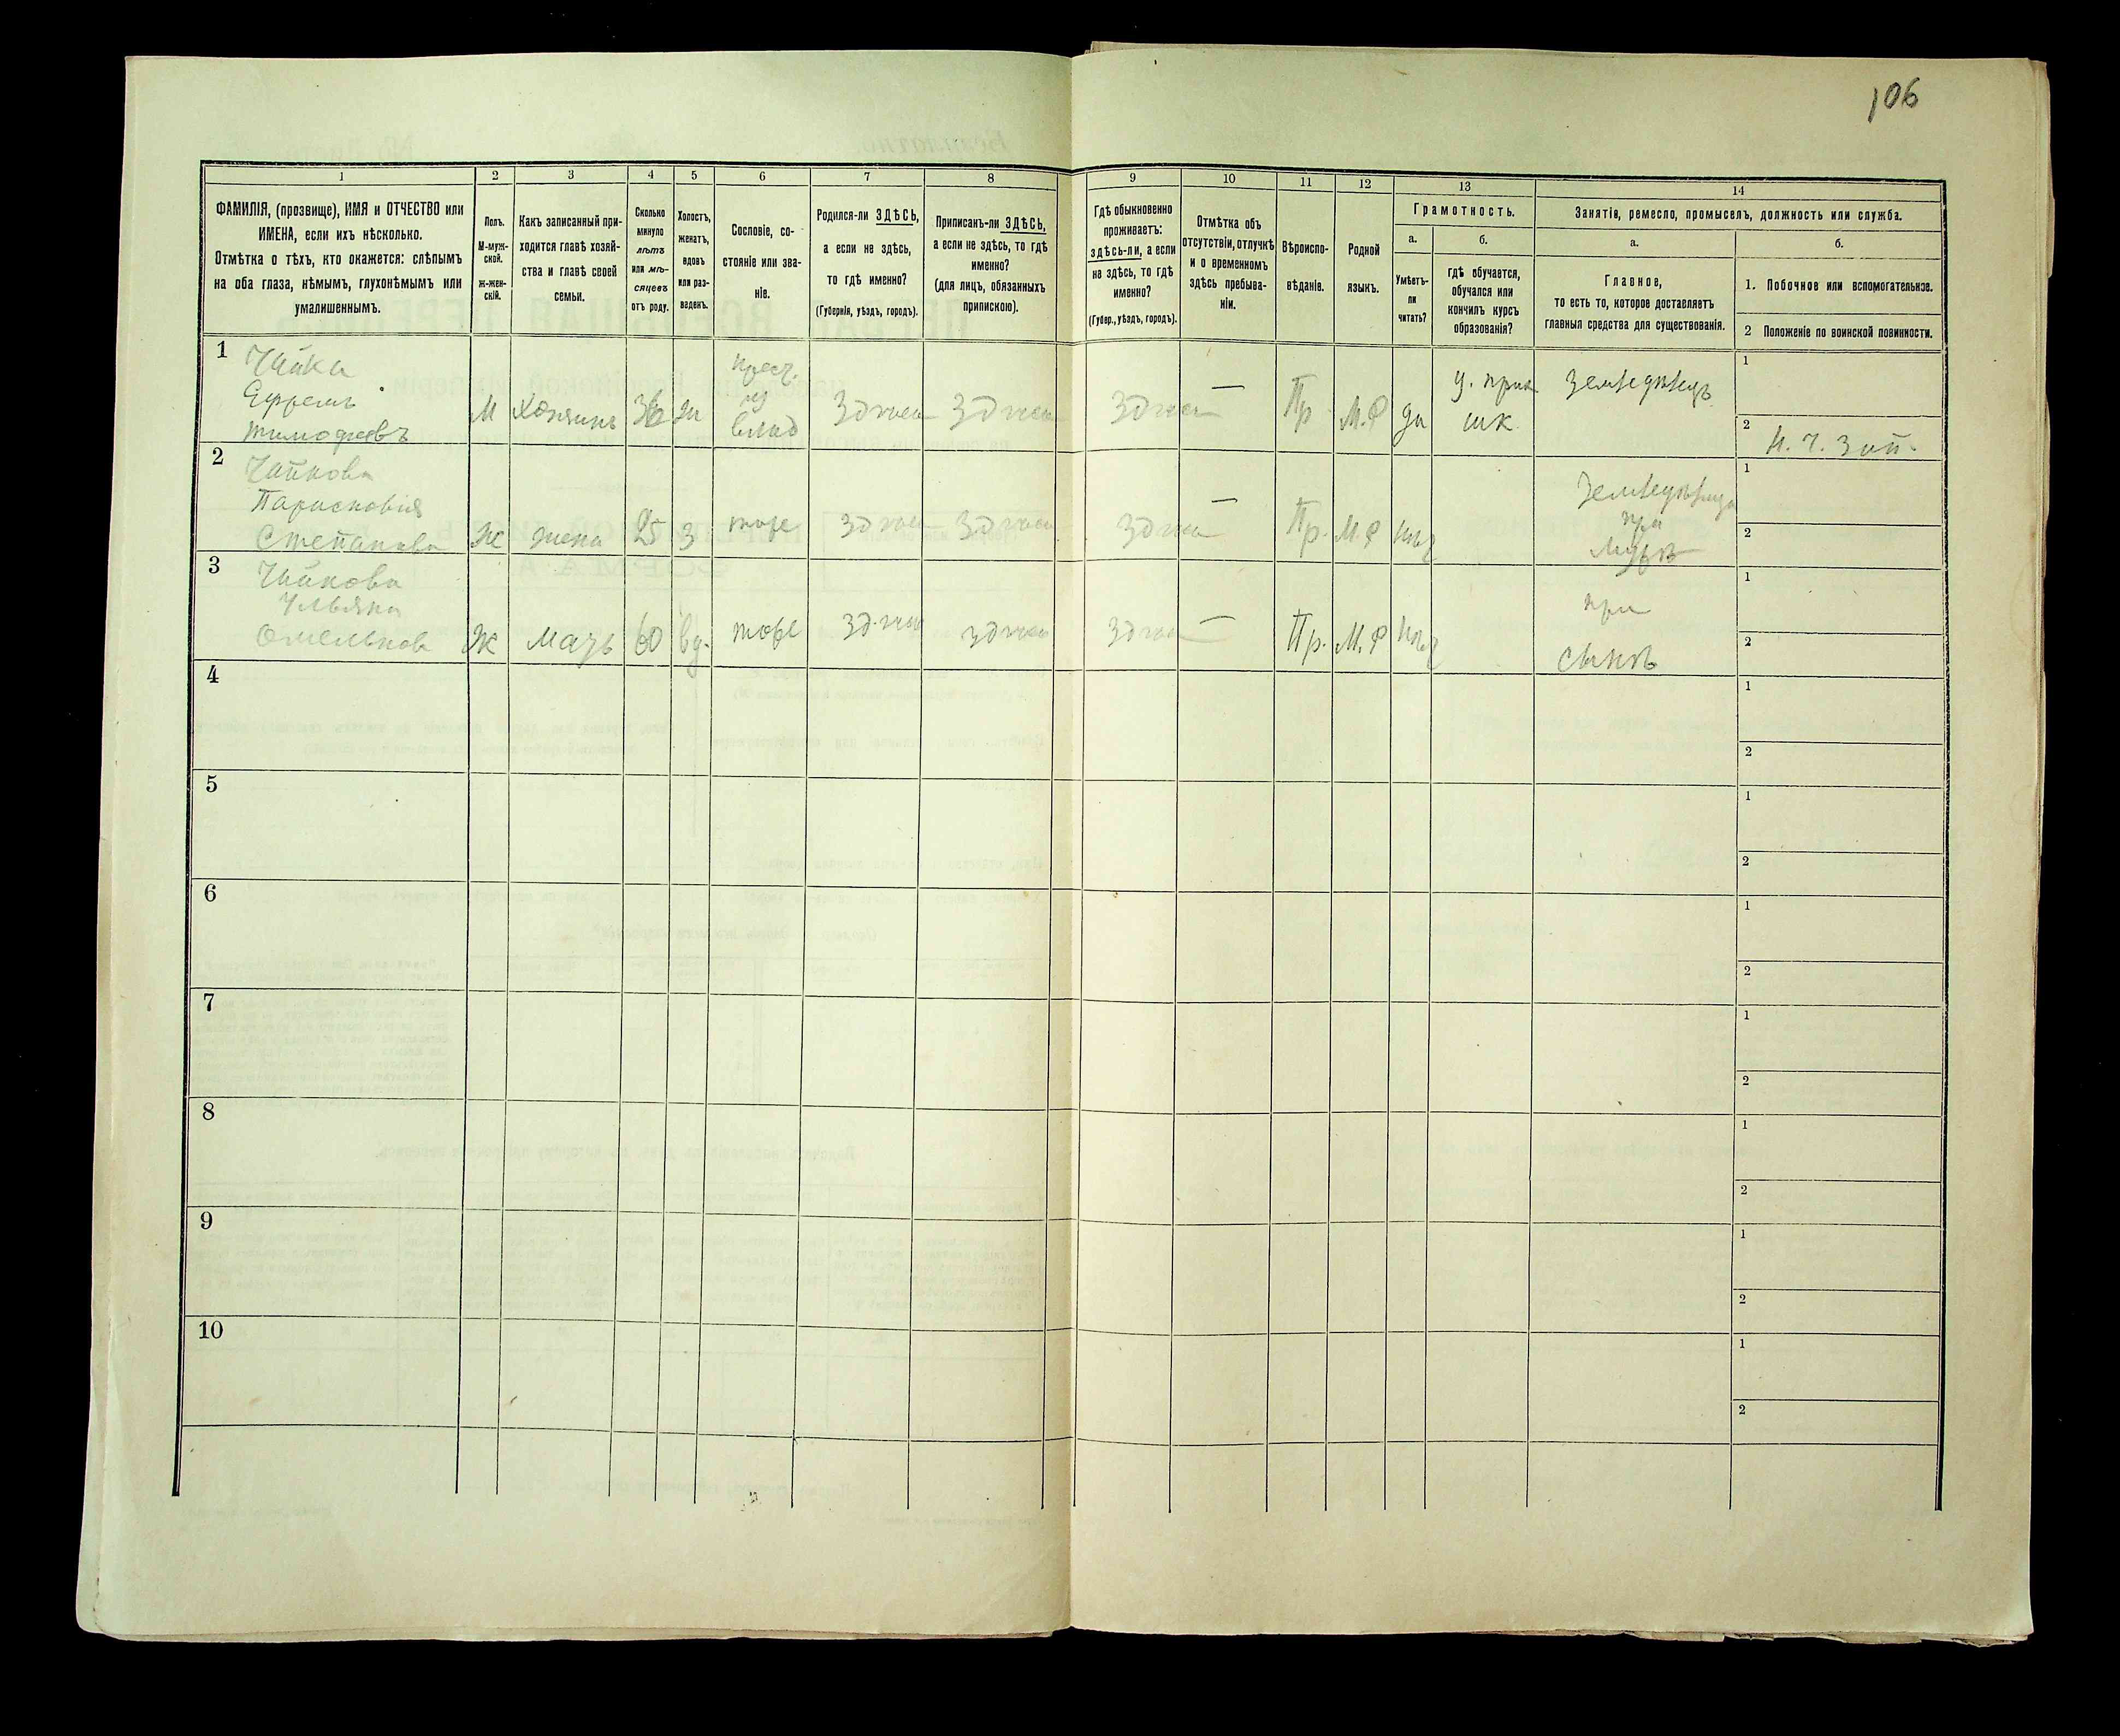 106
1 2 3 4 5 6 7 8 9 10 11 12 13 14
ФАМИЛІЯ, (прозвище), ИМЯ и ОТЧЕСТВО или
ИМЕНА, если ихъ нѣсколько.
Отмѣтка о тѣхъ, кто окажется: слѣпымъ
на оба глаза, нѣмымъ, глухонѣмымъ или
умалишеннымъ.
Полъ.
М-муж-
ской.
ж-жен-
скій.
Какъ записанный при-
ходится главѣ хозяй-
ства и главѣ своей
семьи.
Сколько
минуло
лѣтъ
или мѣ-
сяцевъ
отъ роду.
Холостъ,
женатъ,
вдовъ
или раз-
веденъ.
Сословіе, со-
стояніе или зва-
ніе.
Родился-ли ЗДѢСЬ,
а если не здѣсь,
то гдѣ именно?
(Губернія, уѣздъ, городъ).
Приписанъ-ли ЗДѢСЬ,
а если не здѣсь, то гдѣ
именно?
(для лицъ, обязанныхъ
припискою).
Гдѣ обыкновенно
проживаетъ:
здѣсь-ли, а если
не здѣсь, то гдѣ
именно?
(Губер., уѣздъ, городъ).
Отмѣтка объ
отсутствіи, отлучкѣ
и о временномъ
здѣсь пребыва-
ніи.
Вѣроиспо-
вѣданіе.
Родной
языкъ.
Грамотность.
а.
Умѣетъ-
ли
читать?
б.
гдѣ обучается,
обучался или
кончилъ курсъ
образованія?
Занятіе, ремесло, промыселъ, должность или служба.
а.
Главное,
то есть то, которое доставляетъ
главныя средства для существованія.
б.
1. Побочное или вспомогательное.
2 Положеніе по воинской повинности.
1
Чайка
Ефремъ
Тимофеевъ
М Хозяинъ 36 Ж
крест.
из
влад
Здесь Здесь Здесь — Пр М.Р да
шк.
Земледѣлецъ
1
2
2
Чайкова
Парасковія
Степанова
Ж жена 25 З тоже Здесь Здесь Здесь — Пр. М.Р
при
мужѣ
1
2
3
Чайкова
Ульяна
Омелькова
Ж Мать 60 вд. тоже здесь здесь здесь — Пр. М.Р
при
сынѣ
1
2
4
1
2
5
1
2
6
1
2
7
1
2
8
1
2
9
1
2
10
1
2